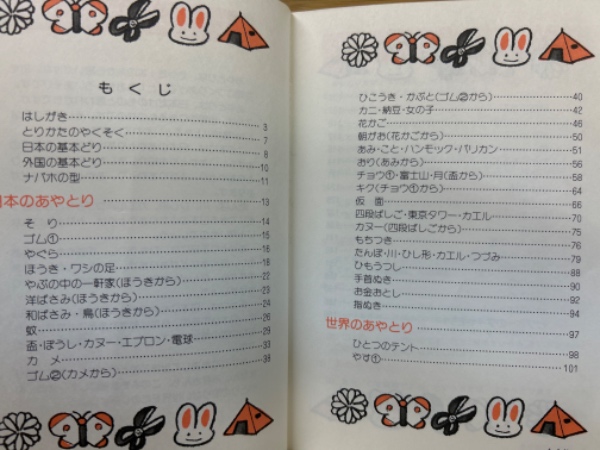 もくじ
はしがき 3
とりかたのやくそく 7
日本の基本どり 8
外国の基本どり 10
ナバホの型 11
日本のあやとり 13
そり 14
ゴム① 15
やぐら 18
ほうき・ワシの足
やぶの中の一軒家(ほうきから) 22
洋ばさみ(ほうきから) 23
和ばさみ・鳥(ほうきから) 24
蚊 26
盃・ぼうし・カヌー・エプロン・電球
カメ
ゴム②(カメから) 38
ひこうき・かぶと(ゴム②から) 40
カニ・納豆・女の子 42
花かご 46
朝がお(花かごから) 50
あみ・こと・ハンモック・バリカン 51
おり(あみから) 56
チョウ①・富士山・月(盃から) 58
キク(チョウ①から) 64
仮面 66
四段ばしご・東京タワー・カエル 70
カヌー(四段ばしごから) 75
もちつき 76
たんぼ・川・ひし形・カエル・つづみ 79
ひもうつし 88
手首ぬき 90
お金おとし 92
指ぬき 94
世界のあやとり 97
ひとつのテント 98
やす① 101